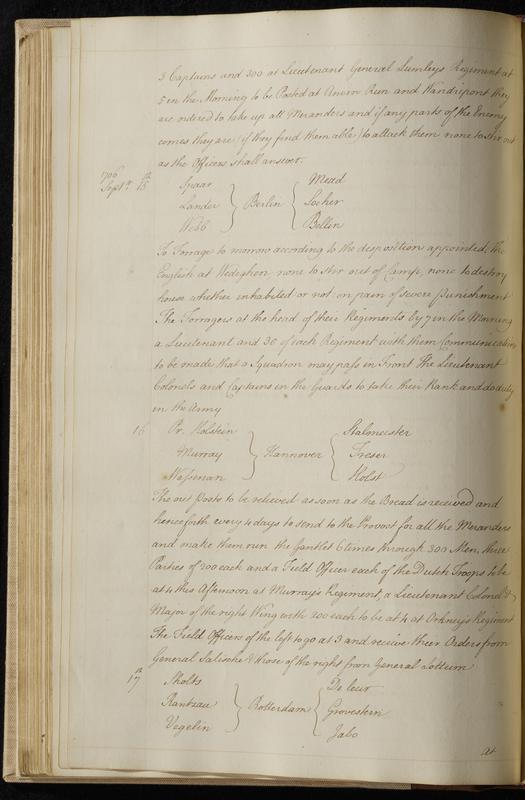 3 Captains and 300 at Lieutenant General Lumleys Regiment at
5 in the Morning to be Posted at and they
are ordered to take up all Meranders and if any parts of the Enemy
comes they are (if they find them able) to attack them none to stir out
as the Officers shall answer.
1706
Septr. 15
Spaar
Lander
Webb
Berlin
Mead
Locher
Bellin
To Forrage to morrow according to the desposition appointed, the
English at none to stir out of Camp, none to destroy
house whether inhabited or not on pain of severe Punishment
The Forragers at the head of their Regiments by 7 in the Morning
a Lieutenant and 30 of each Regiment with them Communication
to be made that a Squadron may pass in Front The Lieutenant
Colonels and Captains in the Guards to take their Rank and do duty
in the Army
16
Pr. Holstein
Murray
Wassinan
Hannover
Stalmeister
Treser
Holst
The out Posts to be relieved as soon as the Bread is received and
henceforth every 4 days to send to the Provost for all the Meranders
and make them run the Gantlet 6 times through 300 Men, three
Parties of 200 each and a Field Officer each of the Dutch Troops to be
at 4 this Afternoon at Murray's Regiment, a Lieutenant Colonel &
Major of the right Wing with 200 each to be at 4 at Orkney's Regiment
The Field Officers of the left to go at 3 and receive their Orders from
General Salische & those of the right from General Lottum
17
Sholts
Rantzau
Vegelin
Rotterdam
De leur
Grovestern
Jabo
at